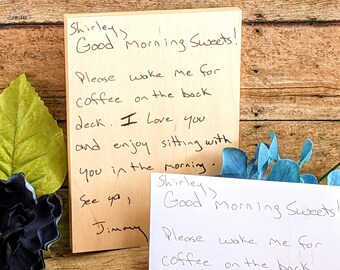 Shirley,
Good Morning Sweets!
Please wake me for
coffee on the back
deck. I love you
and enjoy sitting with
you in the morning.
See ya,
Jimmy
Shirley,
Good Morning Sweets!
Please wake me for
coffee on the back